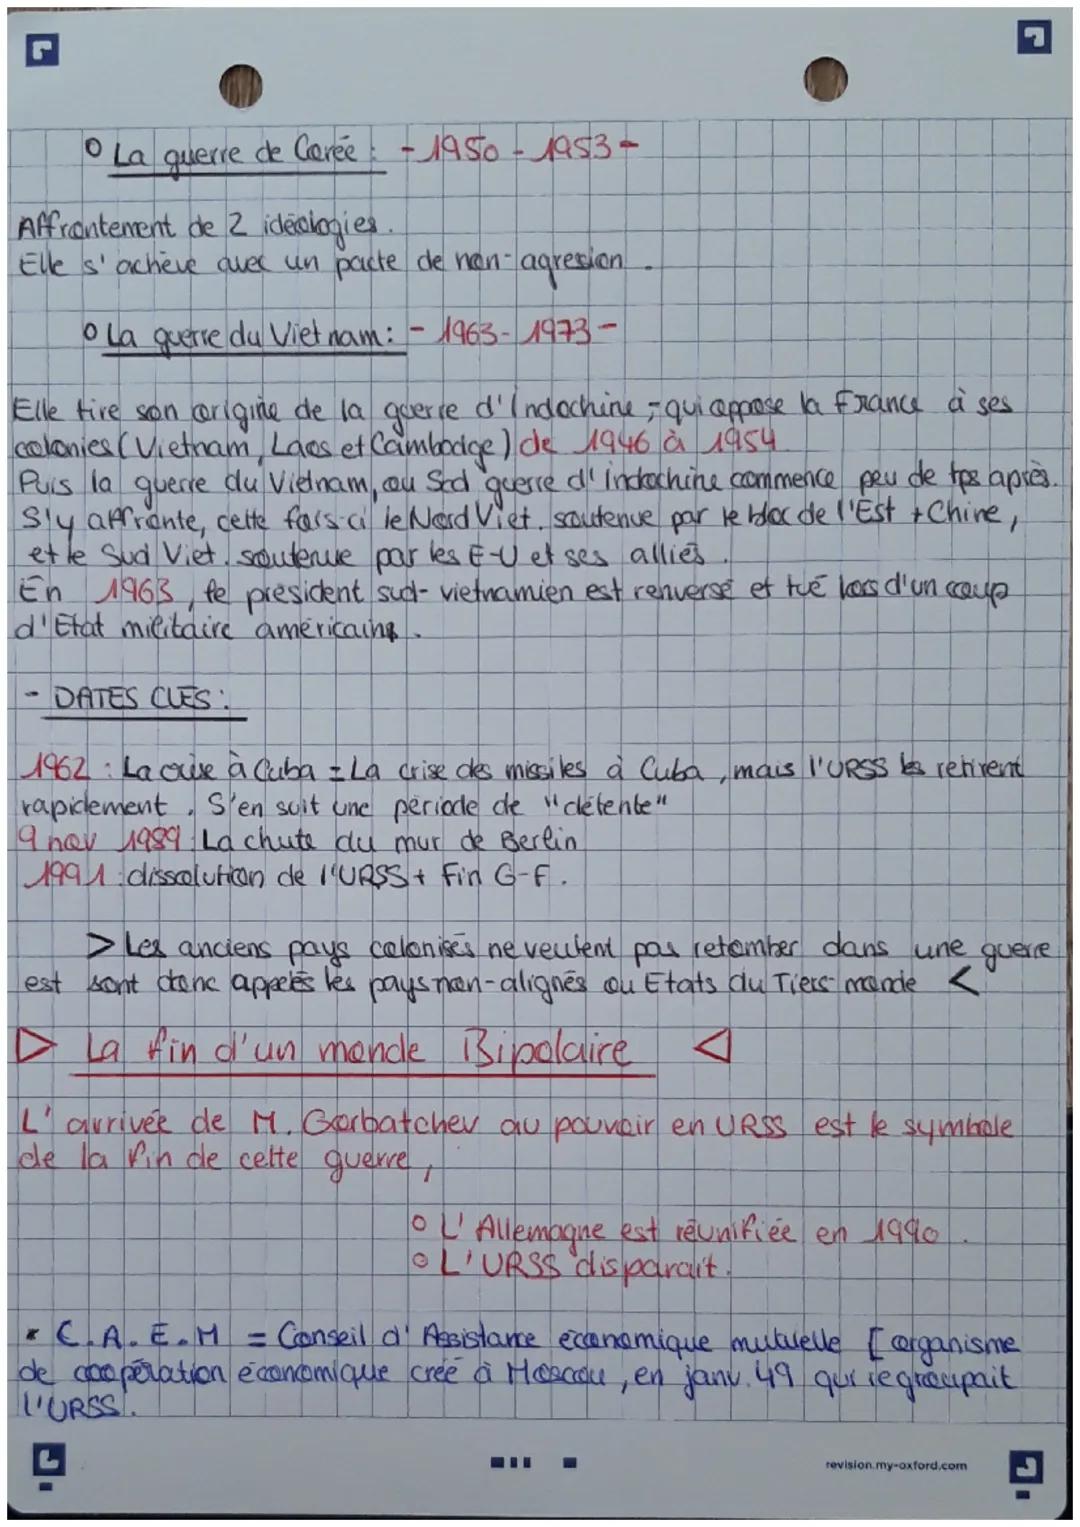 o La guerre de Corée : - 1950 - 1953 -
Affrontement de 2 idéologies.
Elle s'achève avec un pacte de non-agresion.
o La guerre du Viet nam : - 1963 - 1973 -
Elle tire son origine de la guerre d'Indochine, qui oppose la France à ses
colonies (Vietnam, Laos et Cambodge) de 1946 à 1954
Puis la guerre du Vietnam, ou Scd guerre d'indochine commence peu de tps après.
S'y affronte, cette fois-ci le Nord Viet. soutenue par le bloc de l'Est + Chine,
et le Sud Viet. soutenue par les E-U et ses alliés.
En 1963, le président sud-vietnamien est renversé et tué lors d'un coup
d'Etat militaire américain.
- DATES CLES :
1962 : La crise à Cuba = La crise des missiles à Cuba, mais l'URSS les retirent
rapidement. S'en suit une période de "détente"
9 nov 1989 : La chute du mur de Berlin
1991 : dissolution de l'URSS + fin G-F.
> Les anciens pays colonisés ne veulent pas retomber dans une guerre
est sont donc appelés les pays non-alignés ou Etats du Tiers-monde <
▷ La fin d'un monde Bipolaire ◁
L'arrivée de M. Gorbatchev au pouvoir en URSS est le symbole
de la fin de cette guerre,
o L'Allemagne est réunifiée en 1990.
o L'URSS disparait.
* C.A.E.M = Conseil d'Assistance économique mutuelle [organisme
de coopération économique créé à Moscou, en janv. 49 qui regroupait
l'URSS.
revision.my-oxford.com